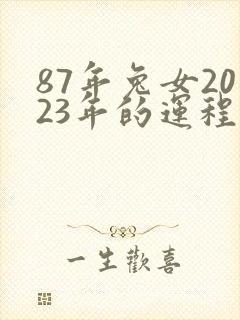 87年兔女20
23年的運程
一生歡喜